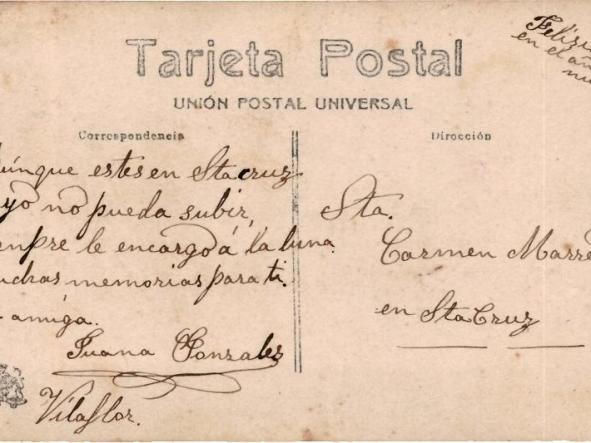 Tarjeta Postal
UNIÓN POSTAL UNIVERSAL
Correspondencia
Dirección
en el
Aúnque estes en Sta cruz
yo no pueda subir,
le encargo á la luna
memorias para ti.
amiga.
Juana Gonzales
Vilaflor.
Sta.
Carmen Marre
en Sta Cruz